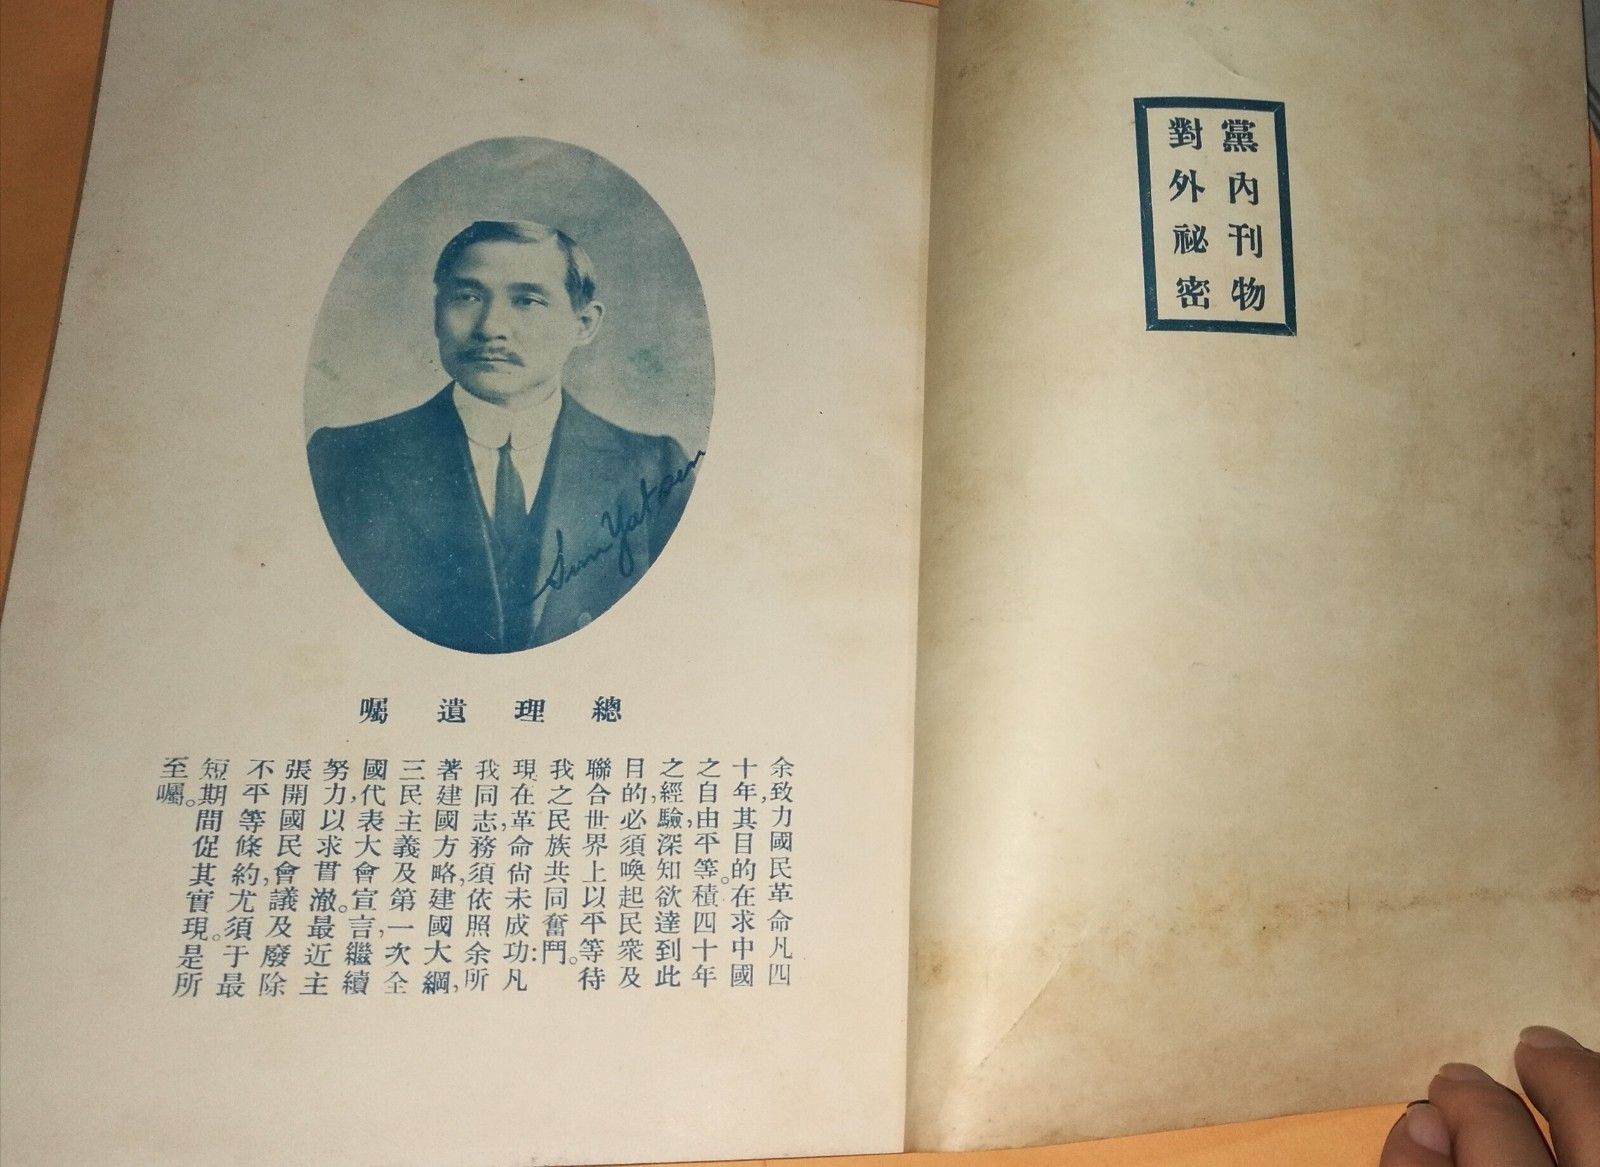 黨內刊物
對外祕密
Sun Yat sen
總理遺囑
余致力國民革命凡四
十年，其目的在求中國
之自由平等。積四十年
之經驗，深知欲達到此
目的，必須喚起民衆及
聯合世界上以平等待
我之民族共同奮鬥。
現在革命尚未成功：凡
我同志，務須依照余所
著建國方略，建國大綱，
三民主義及第一次全
國代表大會宣言，繼續
努力，以求貫澈。最近主
張開國民會議及廢除
不平等條約，尤須于最
短期間促其實現。是所
至囑。